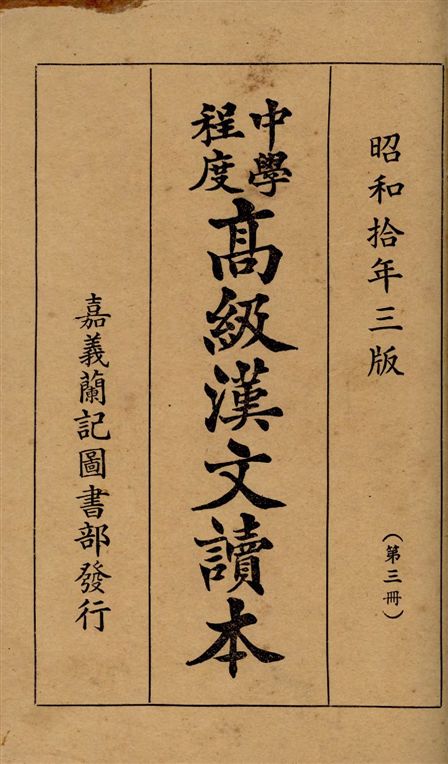 昭和拾年三版
(第三冊)
中學
程度
高級漢文讀本
嘉義蘭記圖書部發行